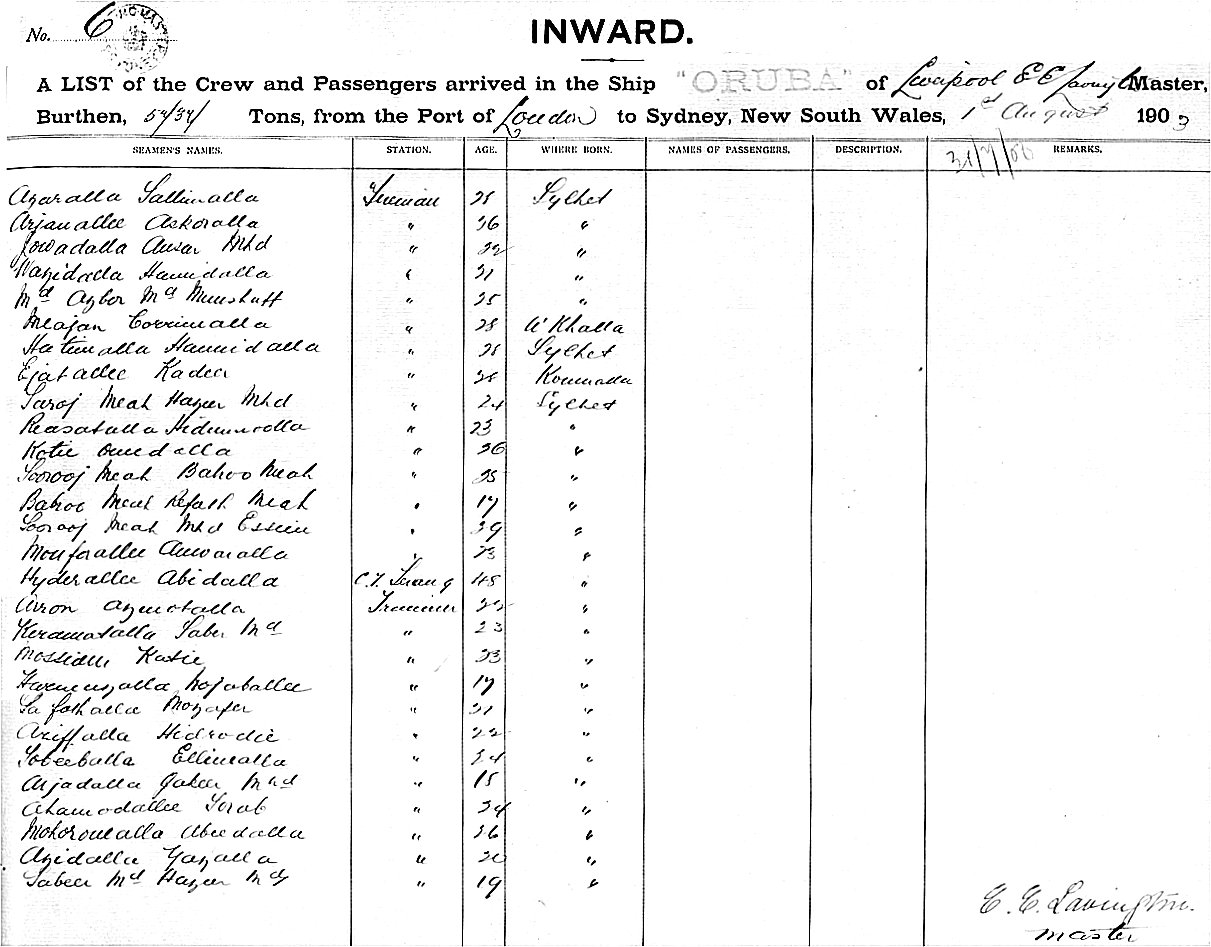 No. 6
INWARD.
A LIST of the Crew and Passengers arrived in the Ship "ORUBA" of Liverpool E E Master,
Burthen, Tons, from the Port of London to Sydney, New South Wales, 1st August 190
SEAMEN'S NAMES. STATION. AGE. WHERE BORN. NAMES OF PASSENGERS. DESCRIPTION. REMARKS.
31/7/06
Azaralla Sallimalla Fireman 28 Sylhet
Arjanallee Askoralla " 26 "
Jowadalla Ansar Mhd " 22 "
Wazidalla Hamidalla " 21 "
Md Azbor Md " 25 "
Meajan Corrimalla " 28 Khalla
Hatimalla Hamidalla " 28 Sylhet
Ejatallee Kader "
Saroj Meah Hazer Mhd " 24 Sylhet
Reasatalla " 23 "
Katie Omedalla " 26 "
Soorooj Meah Bahoo Meah " 25 "
Bahoo Meah Refath Meah " 17 "
Soorooj Meah Mhd Essim " 29 "
Monfrallee Anwaralla " 23 "
Hyderallee Abidalla 48 "
Arron Azmotalla Trimmer 22 "
Keramatalla Saber Md " 23 "
Katie " 23 "
Mojoballee " 17 "
Mozafer " 21 "
Aziffalla Hidrodie " 22 "
Sobeeballa Ellimalla " 24 "
Arjadalla Mhd " 18 "
Ahamodallee " 24 "
Mohoromalla Abedalla " 26 "
Azidalla Gazalla " 20 "
Sabeer Md Hazer Md " 19 "
E. E. Lavington.
Master